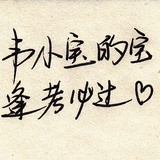 韦小宝的宝
逢考必过♡